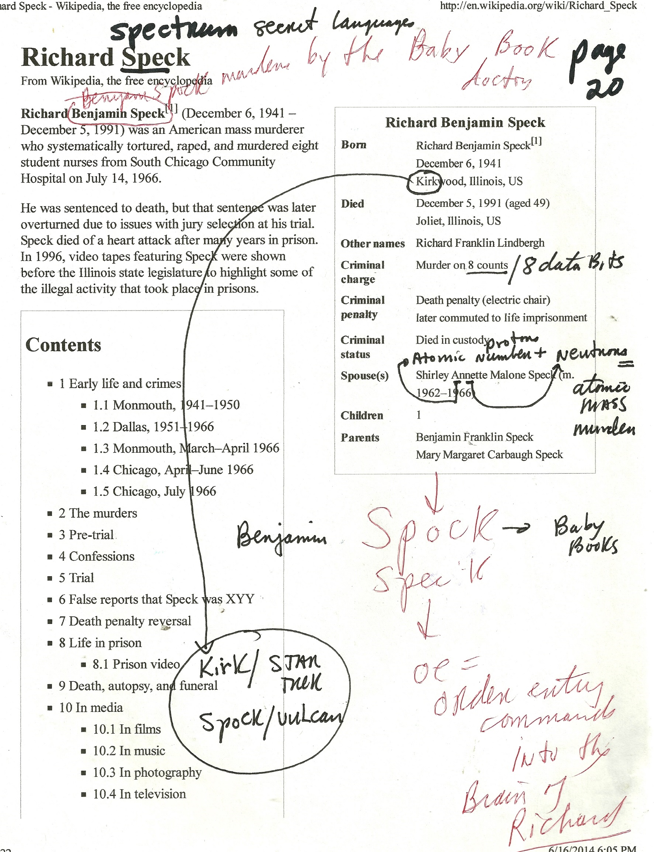 ard Speck - Wikipedia, the free encyclopedia
http://en.wikipedia.org/wiki/Richard_Speck
spectrum secret languages
Richard Speck
murders by the Baby Book
doctor
page
20
From Wikipedia, the free encyclopedia
Benjamin Spock
Richard Benjamin Speck[1] (December 6, 1941 –
December 5, 1991) was an American mass murderer
who systematically tortured, raped, and murdered eight
student nurses from South Chicago Community
Hospital on July 14, 1966.
He was sentenced to death, but that sentence was later
overturned due to issues with jury selection at his trial.
Speck died of a heart attack after many years in prison.
In 1996, video tapes featuring Speck were shown
before the Illinois state legislature to highlight some of
the illegal activity that took place in prisons.
Richard Benjamin Speck
Born Richard Benjamin Speck[1]
December 6, 1941
Kirkwood, Illinois, US
Died December 5, 1991 (aged 49)
Joliet, Illinois, US
Other names Richard Franklin Lindbergh
Criminal charge Murder on 8 counts / 8 data Bits
Criminal penalty Death penalty (electric chair)
later commuted to life imprisonment
Criminal status Died in custody
protons
Atomic Number + Neutrons =
atomic
MASS
murder
Spouse(s) Shirley Annette Malone Speck (m.
1962–1966)
Children 1
Parents Benjamin Franklin Speck
Mary Margaret Carbaugh Speck
Contents
1 Early life and crimes
1.1 Monmouth, 1941–1950
1.2 Dallas, 1951–1966
1.3 Monmouth, March–April 1966
1.4 Chicago, April–June 1966
1.5 Chicago, July 1966
2 The murders
3 Pre-trial
4 Confessions
5 Trial
6 False reports that Speck was XYY
7 Death penalty reversal
8 Life in prison
8.1 Prison video
9 Death, autopsy, and funeral
10 In media
10.1 In films
10.2 In music
10.3 In photography
10.4 In television
Benjamin Spock → Baby
Books
Speck
oe =
order entry
commands
into the
Brain of
Richard
Kirk / STAR
TREK
Spock / Vulcan
6/16/2014 6:05 PM